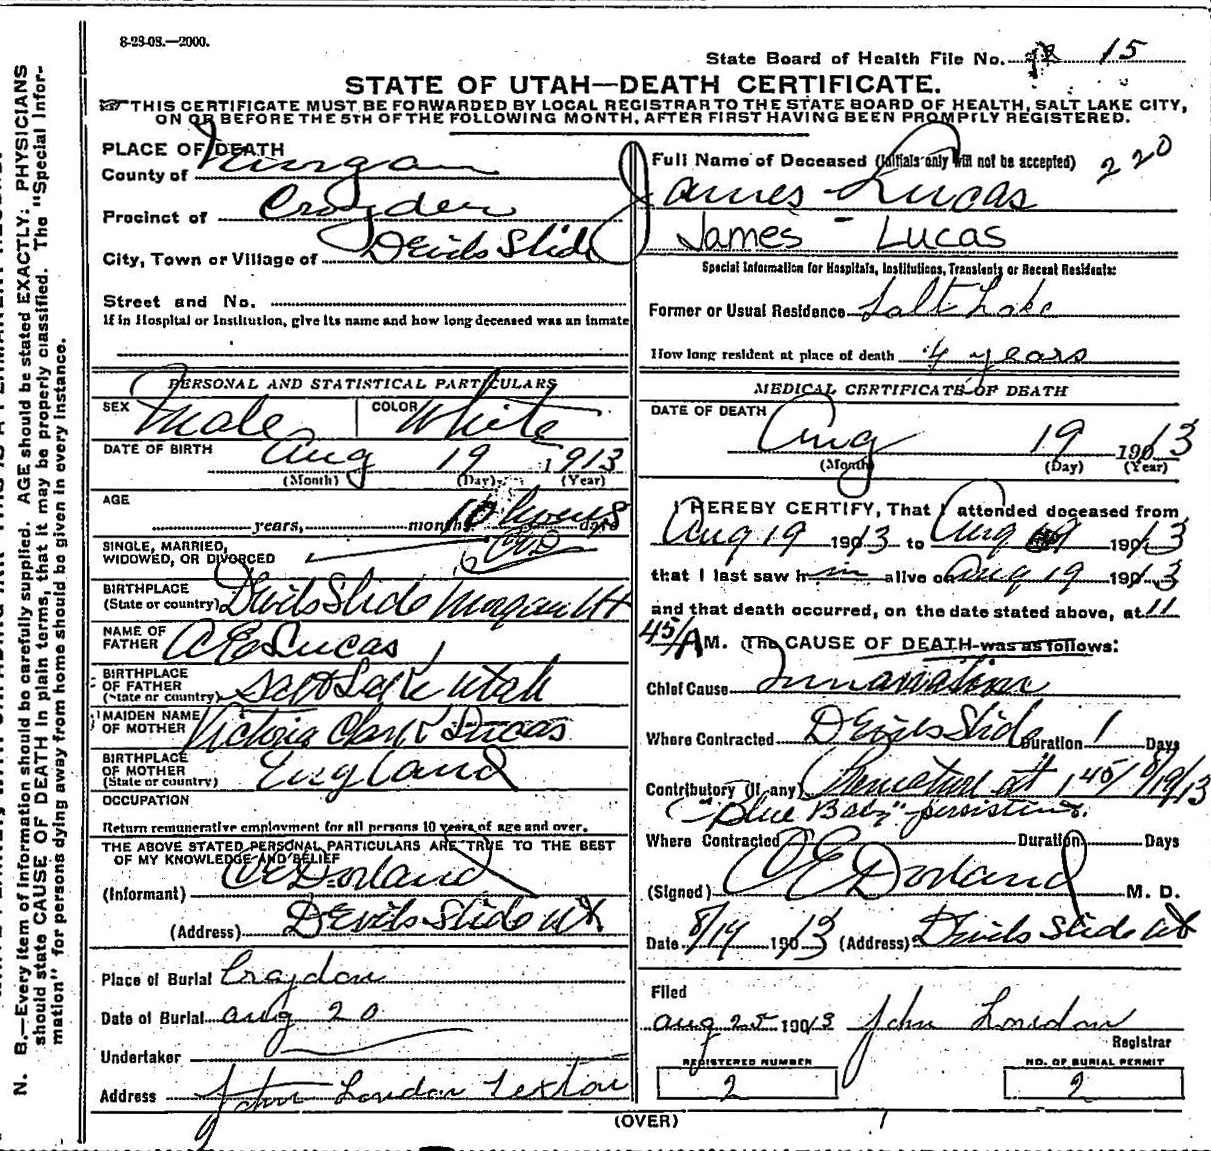 8-23-08.—2000.
State Board of Health File No. 15
STATE OF UTAH—DEATH CERTIFICATE.
THIS CERTIFICATE MUST BE FORWARDED BY LOCAL REGISTRAR TO THE STATE BOARD OF HEALTH, SALT LAKE CITY,
ON OR BEFORE THE 5TH OF THE FOLLOWING MONTH, AFTER FIRST HAVING BEEN PROMPTLY REGISTERED.
PLACE OF DEATH
County of Morgan
Precinct of Croyden
City, Town or Village of Devils Slide
Street and No.
If in Hospital or Institution, give its name and how long deceased was an inmate
Full Name of Deceased (Initials only will not be accepted) 220
James Lucas
James - Lucas
Special Information for Hospitals, Institutions, Transients or Recent Residents:
Former or Usual Residence Salt Lake
How long resident at place of death 4 years
PERSONAL AND STATISTICAL PARTICULARS
SEX Male COLOR White
DATE OF BIRTH Aug 19 1913
(Month) (Day) (Year)
AGE
years, months, 10 hours days
SINGLE, MARRIED,
WIDOWED, OR DIVORCED
BIRTHPLACE
(State or country) Devils Slide Morgan Ut
NAME OF
FATHER A E Lucas
BIRTHPLACE
OF FATHER
(State or country) Salt Lake Utah
MAIDEN NAME
OF MOTHER Victoria Clark Lucas
BIRTHPLACE
OF MOTHER
(State or country) England
OCCUPATION
Return remunerative employment for all persons 10 years of age and over.
THE ABOVE STATED PERSONAL PARTICULARS ARE TRUE TO THE BEST
OF MY KNOWLEDGE AND BELIEF
(Informant) C E Dorland
(Address) Devils Slide Ut
Place of Burial Croydon
Date of Burial Aug 20
Undertaker
Address John London Sexton
MEDICAL CERTIFICATE OF DEATH
DATE OF DEATH Aug 19 190 13
(Month) (Day) (Year)
I HEREBY CERTIFY, That I attended deceased from
Aug 19 190 13 to Aug 19 190 13
that I last saw him alive on Aug 19 190 13
and that death occurred, on the date stated above, at 11
45/AM. The CAUSE OF DEATH was as follows:
Chief Cause Innanation
Where Contracted Devils Slide Duration 1 Days
Contributory (if any) Premature at 1 45/ 8/19/13
"Blue Baby" persistent.
Where Contracted Duration Days
(Signed) C E Dorland M. D.
Date 8/19 190 13 (Address) Devils Slide Ut
Filed
Aug 25 190 13 John London
Registrar
REGISTERED NUMBER NO. OF BURIAL PERMIT
2 2
(OVER)
N. B.—Every item of information should be carefully supplied. AGE should be stated EXACTLY. PHYSICIANS
should state CAUSE OF DEATH in plain terms, that it may be properly classified. The "Special Infor-
mation" for persons dying away from home should be given in every instance.